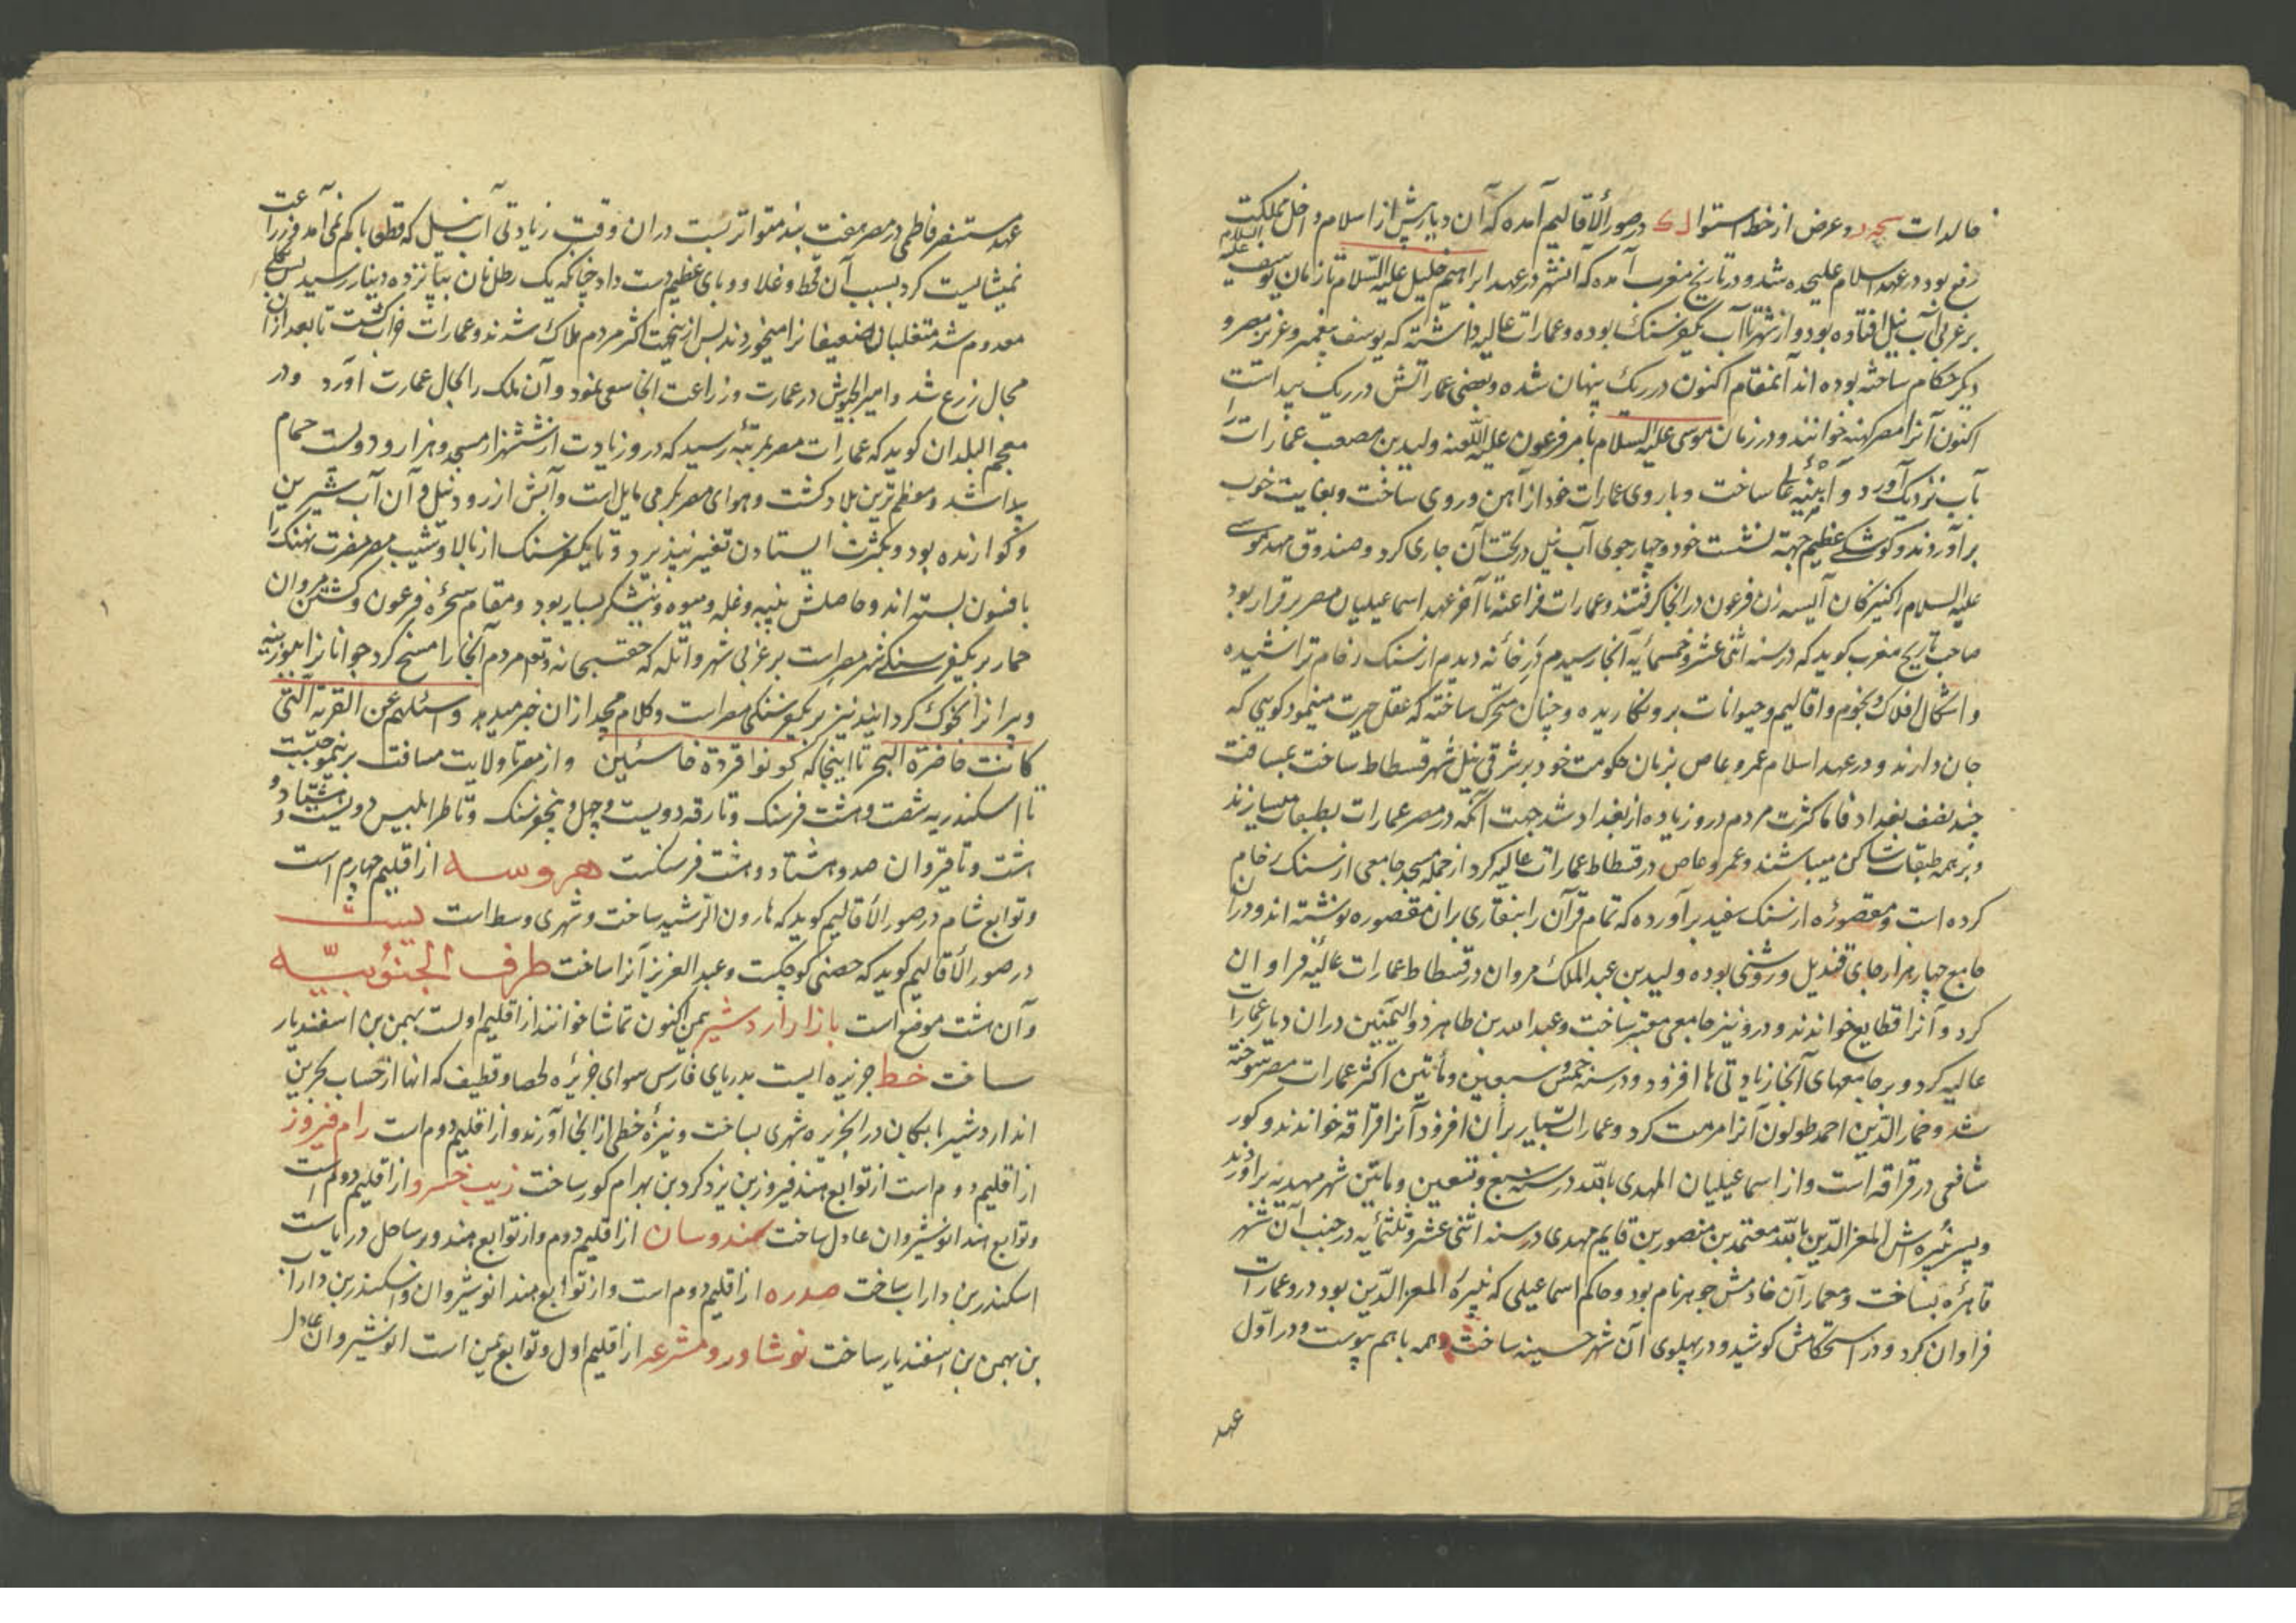 خالدات سجه د و عرض از خط استوا ل ک در صور الأقالیم آمده که آن دیار پیش از اسلام داخل مملکت
رفع بود در عهد اسلام علیحده شد و در تاریخ مغرب آمده که آنشهر در عهد ابراهیم خلیل علیه السلام تا زمان یوسف علیه السلام
بر غربی آب نیل افتاده بود و از شهر تا آب یکفرسنک بوده و عمارات عالیه داشته که یوسف پیغمبر و عزیز مصر و
دیکر حکام ساخته بوده اند آنمقام اکنون در ریک پنهان شده و بعضی عماراتش در ریک پیداست
اکنون آنرا مصر کهنه خوانند و در زمان موسی علیه السلام بامر فرعون علیه اللعنه ولید بن مصعب عمارات را
بآب نزدیک آورد و ابنیه عالی ساخت و باروی عمارات خود از آهن و روی ساخت و بغایت خوب
برآوردند و کوشکی عظیم جهة نشست خود و چهار جوی آب نیل در تحت آن جاری کرد و صندوق مهد موسی
علیه السلام را کنیزکان آسیه زن فرعون در انجا کرفتند و عمارات فراعنه تا آخر عهد اسماعیلیان مصر برقرار بود
صاحب تاریخ مغرب کوید که در سنه اثنی عشر و خمسمائه آنجا رسیدم در خانه دیدم از سنک رخام تراشیده
و اشکال افلاک و نجوم و اقالیم و حیوانات برو نکاریده و چنان متحرک ساخته که عقل حیرت مینمود کوئی که
جان دارند و در عهد اسلام عمرو عاص بزمان حکومت خود بر شرقی نیل شهر فسطاط ساخت بمسافت
چند نصف بغداد فاما کثرت مردم درو زیاده از بغداد شد جهت آنکه در مصر عمارات بطبقات میسازند
و بر همه طبقات ساکن میباشند و عمرو عاص در فسطاط عمارات عالیه کرد از جمله مسجد جامعی از سنک رخام
کرده است و مقصوره از سنک سفید برآورده که تمام قرآن را بنقاری بران مقصوره نوشته اند و در آن
جامع چهار هزار جای قندیل و روشنی بوده ولید بن عبد الملک مروان در فسطاط عمارات عالیه فراوان
کرد و آنرا قطایع خواندند و درو نیز جامعی معتبر ساخت و عبد الله بن طاهر ذو الیمینین در ان دیار عمارات
عالیه کرد و بر جامعهای آنجا زیادتی ها افزود و در سنه خمس و سبعین و مأتین اکثر عمارات مصر سوخته
شد و خمار الدین احمد طولون آنرا مرمت کرد و عمارات بسیار بر آن افزود آنرا قراقه خواندند و کور
شافعی در قراقه است و از اسماعیلیان المهدی بالله در سنه سبع و تسعین و مأتین شهر مهدیه برآوردند
و پسر نبیره اش المعز الدین بالله معتمد بن منصور بن قایم مهدی در سنه اثنی عشر و ثلثمائه در جنب آن شهر
قاهره بساخت و معمار آن خادمش جوهر نام بود و حاکم اسماعیلی که نبیره المعز الدین بود در و عمارات
فراوان کرد و در استحکامش کوشید و در پهلوی آن شهر حسینیه ساخت و همه باهم پیوست و در اول
عهد
عهد مستنصر فاطمی در مصر هفت سال متواتر بست دران وقت زیادتی آب نیل که قطعا با کم نمی آمد و زراعت
نمیشایست کرد بسبب آن قحط و غلا و وبای عظیم دست داد چنانکه یک رطل نان بپانزده دینار رسید پس
معدوم شد متغلبان ضعیفانرا میخوردند پس ازینجهت اکثر مردم هلاک شدند و عمارات خراب کشت تا بعد از آن
مجال زرع شد و امیر الجیوش در عمارت و زراعت انجا سعی نمود و آن ملک را بحال عمارت آورد و در
معجم البلدان کوید که عمارات مصر بمرتبه رسید که درو زیادت از شش هزار مسجد و هزار و دویست حمام
پیدا شد و معظم ترین بلاد کشت و هوای مصر بکرمی مایل است و آبش از رود نیل و آن آب شیرین
و کوارنده بود و بکثرت ایستادن تغیر نپذیرد و تا یکفرسنک از بالا و شیب مصر مضرت نهنک را
بافسون بسته اند و حاصلش پنبه و غله و میوه و نیشکر بسیار بود و مقام سحره فرعون و کشتن مروان
حمار بر یکفرسنکی شهر مصر است بر غربی شهر و ایله که حق سبحانه و تع مردم آنجا را مسخ کرد جوانانرا بوزینه
و پیرانرا بخوک کردانید نیز بر یکفرسنکی مصر است و کلام مجید ازان خبر میدهد و اسئلهم عن القریة التی
کانت حاضرة البحر تا اینجا که کونوا قردة خاسئین و از مصر تا ولایت مسافت برینموجبست
تا اسکندریه شصت و هشت فرسنک و تا رقه دویست و چهل و پنج فرسنک و تا طرابلس دویست و هشتاد و
هشت و تا قیروان صد و هشتاد و هشت فرسنکست هروسه از اقلیم چهارم است
و توابع شام در صور الأقالیم کوید که هارون الرشید ساخت و شهری وسط است
در صور الأقالیم کوید که حصنی کوچکست و عبد العزیز آنرا ساخت طرف الجنوبیّه
و آن هشت موضع است بازار اردشیر بمن اکنون تماشا خوانند از اقلیم اولست بهمن بن اسفندیار
ساخت خط جزیره ایست بدریای فارس سوای جزیره لحصا و قطیف که انها از حساب بحرین
اند اردشیر بابکان در انجزیره شهری بساخت و نیزه خطی از انجا آورند و از اقلیم دوم است رام فیروز
از اقلیم دوم است از توابع هند فیروز بن یزدکرد بن بهرام کور ساخت زیب خسرو از اقلیم دوم است
و توابع هند انوشیروان عادل ساخت سمندوسان از اقلیم دوم و از توابع هند و بر ساحل دریاست
اسکندر بن داراب ساخت صدره از اقلیم دوم است و از توابع هند انوشیروان و اسکندر بن داراب
بن بهمن بن اسفندیار ساخت نوشاور و مشرعه از اقلیم اول و توابع یمن است انوشیروان عادل